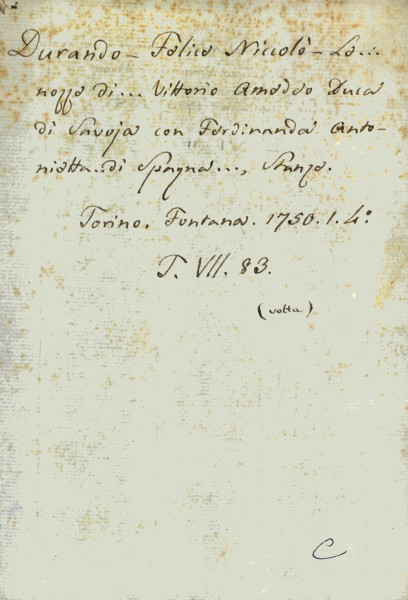 Durando - Felice Niccolò - Le...
nozze di... Vittorio Amedeo Duca
di Savoja con Ferdinanda Anto-
nietta di Spagna..., Stanze.
Torino. Fontana. 1750. 1. 4.º
T. VII. 83.
(volta)
C